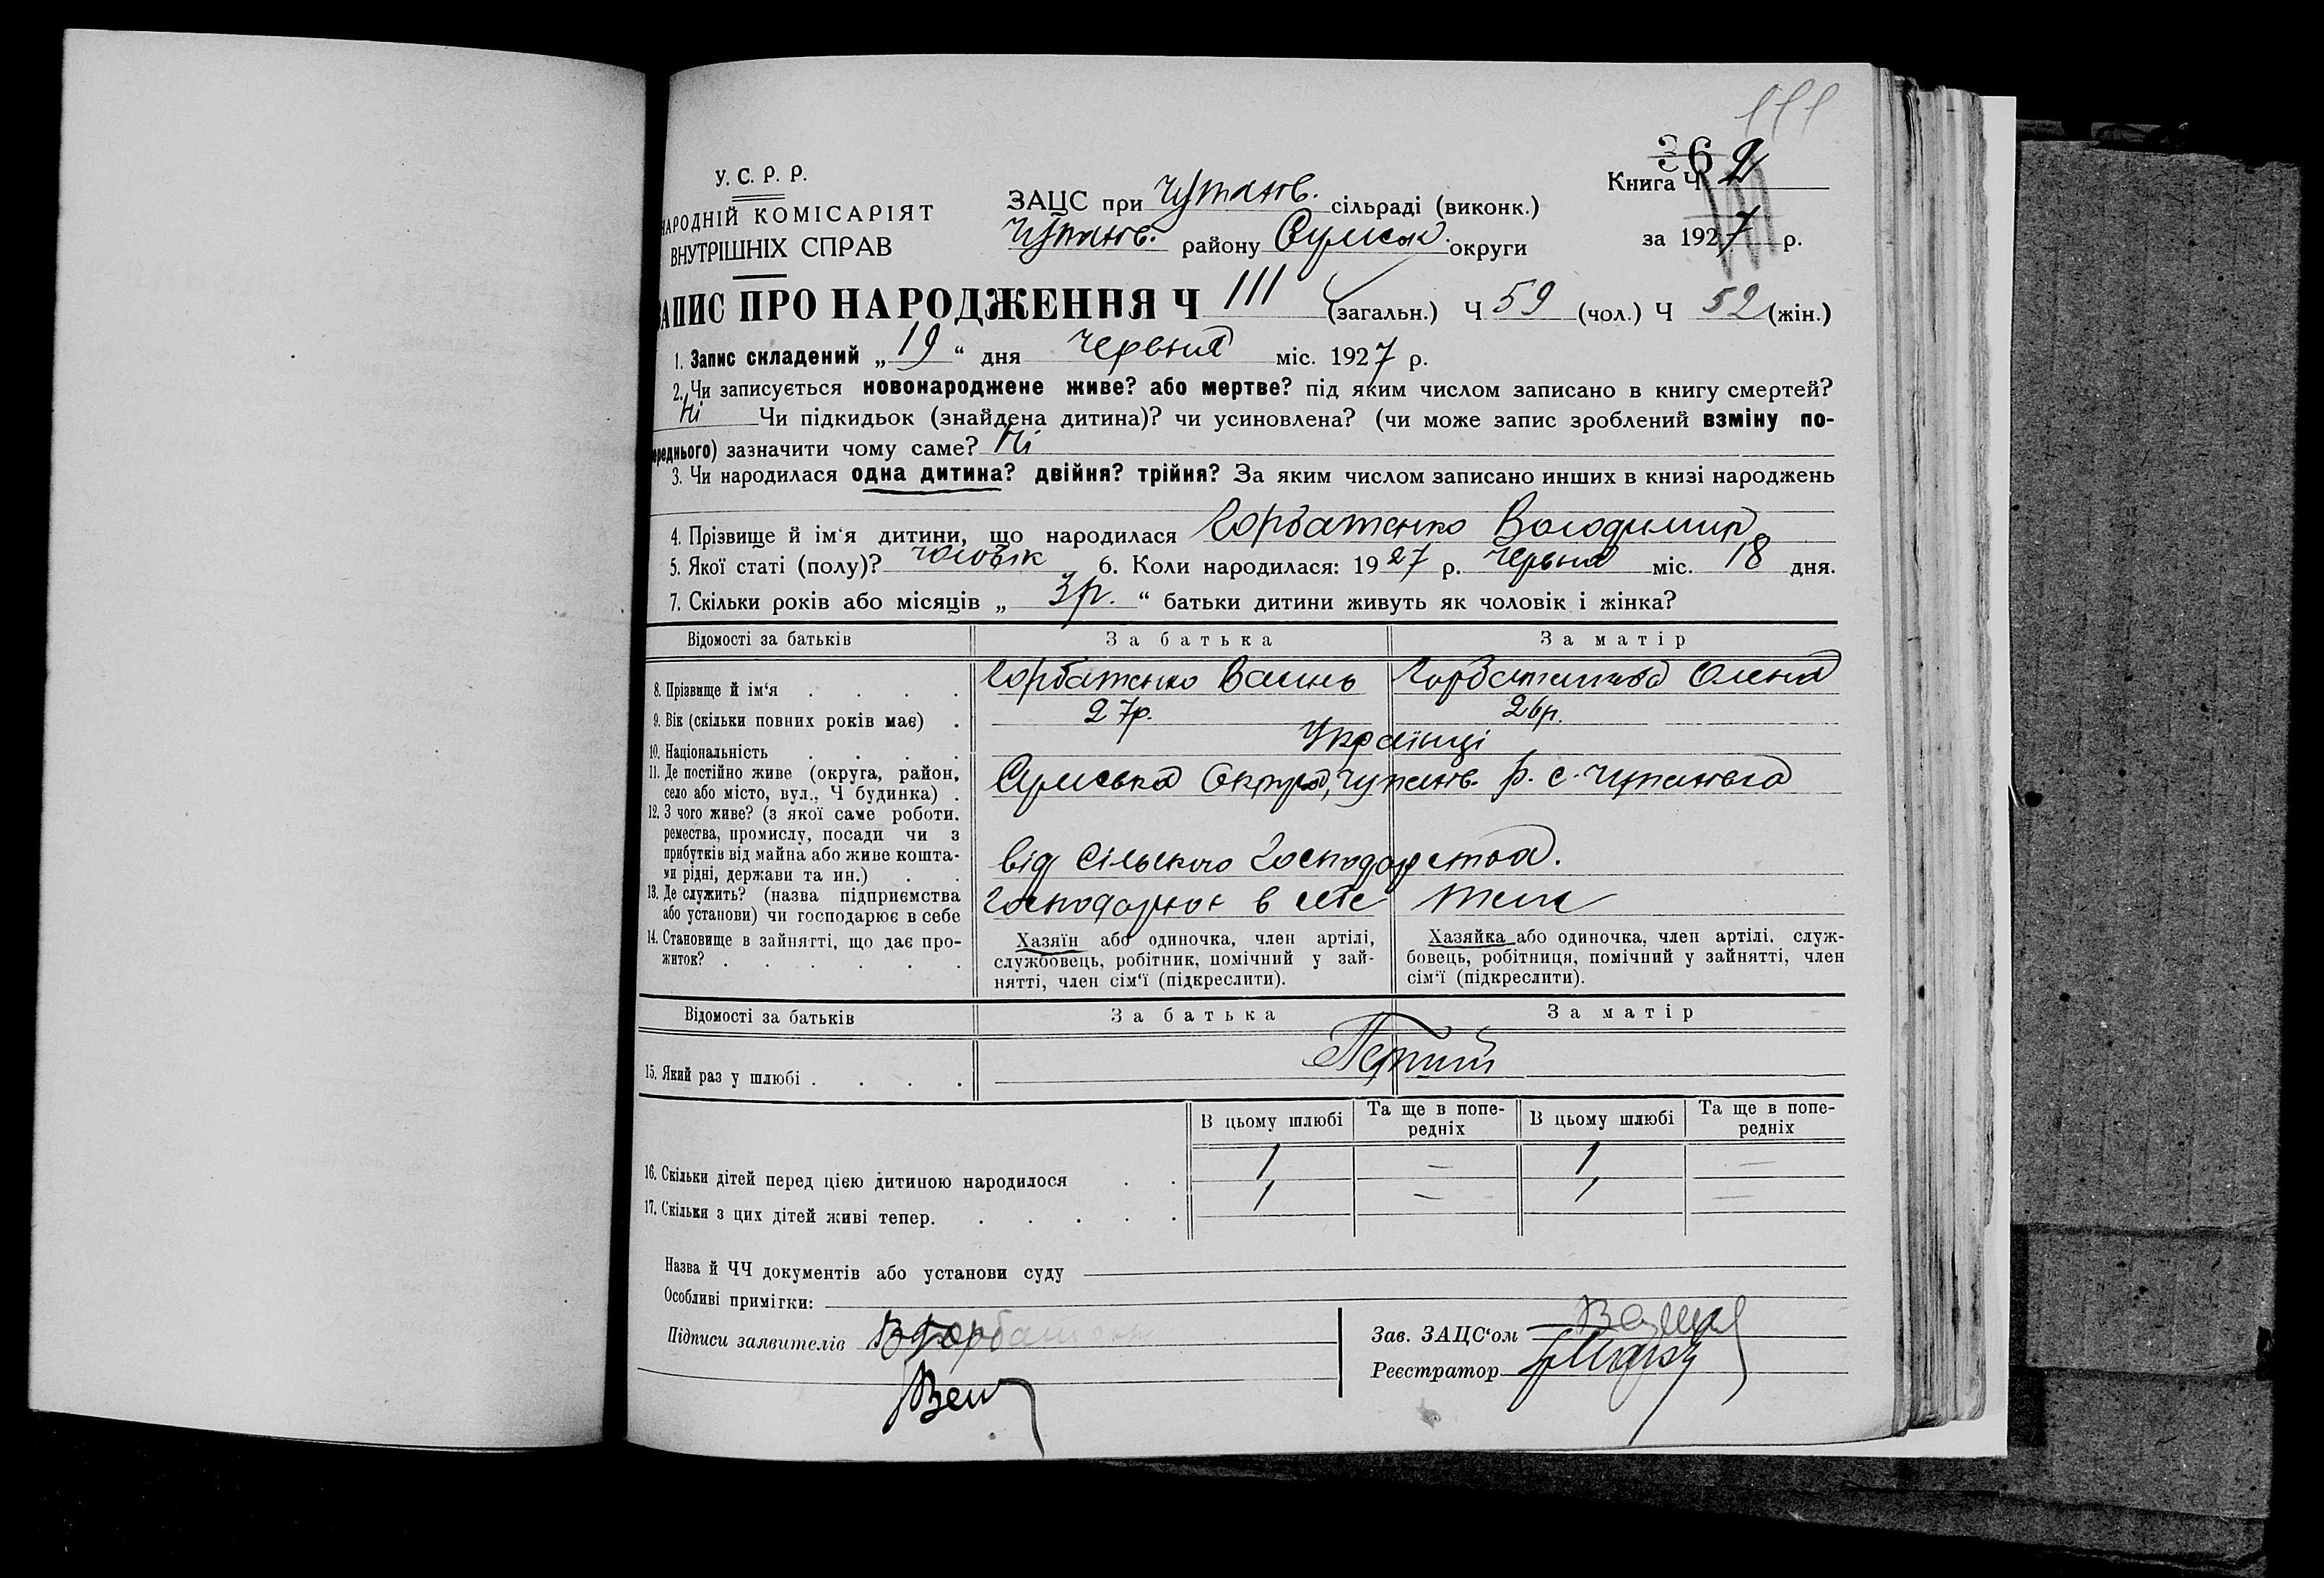 111
362
У. С. Р. Р.
НАРОДНІЙ КОМІСАРІЯТ
ВНУТРІШНІХ СПРАВ
ЗАЦС при сільраді (виконк.)
району Сумськ. округи
Книга Ч 2
за 1927 р.
ЗАПИС ПРО НАРОДЖЕННЯ Ч 111 (загальн.) Ч 59 (чол.) Ч 52 (жін.)
1. Запис складений „ 19 “ дня червня міс. 1927 р.
2. Чи записується новонароджене живе? або мертве? під яким числом записано в книгу смертей?
Ні Чи підкидьок (знайдена дитина)? чи усиновлена? (чи може запис зроблений взміну по-
ереднього) зазначити чому саме? Ні
3. Чи народилася одна дитина? двійня? трійня? За яким числом записано инших в книзі народжень
4. Прізвище й ім'я дитини, що народилася Горбатенко Володимир
5. Якої статі (полу)? чоловік 6. Коли народилася: 1927 р. червня міс. 18 дня.
7. Скільки років або місяців „ 3р. “ батьки дитини живуть як чоловік і жінка?
Відомості за батьків За батька За матір
8. Прізвище й ім'я . . . . Горбатенко Горбатенкова Олена
9. Вік (скільки повних років має) . 27р. 26р.
10. Національність . . . . Українці
11. Де постійно живе (округа, район,
село або місто, вул., Ч будинка) . Сумська Округа, р. с.
12. З чого живе? (з якої саме роботи,
ремества, промислу, посади чи з
прибутків від майна або живе кошта-
ми рідні, держави та ин.) . . від сільского господарства.
13. Де служить? (назва підприємства
або установи) чи господарює в себе господарює в себе теж
14. Становище в зайнятті, що дає про-
житок? . . . . . .
Хазяїн або одиночка, член артілі,
службовець, робітник, помічний у зай-
нятті, член сім'ї (підкреслити).
Хазяйка або одиночка, член артілі, служ-
бовець, робітниця, помічний у зайнятті, член
сім'ї (підкреслити).
Відомості за батьків За батька За матір
15. Який раз у шлюбі . . . . Перший
В цьому шлюбі Та ще в попе-
редніх В цьому шлюбі Та ще в попе-
редніх
16. Скільки дітей перед цією дитиною народилося . . 1 — 1 —
17. Скільки з цих дітей живі тепер. . . . . . 1 — 1 —
Назва й ЧЧ документів або установи суду
Особливі примітки:
Підписи заявителів В Горбатенко
Зав. ЗАЦС'ом
Реєстратор